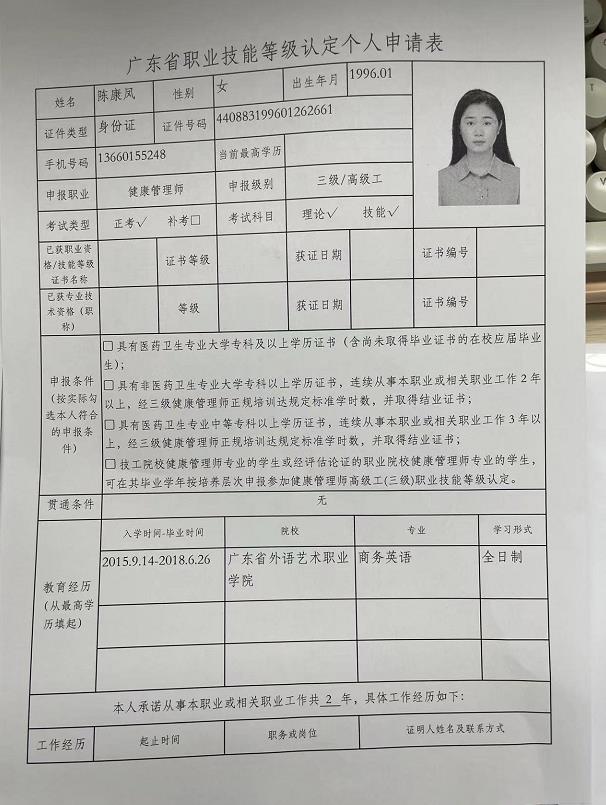 广东省职业技能等级认定个人申请表
姓名 陈康凤 性别 女 出生年月 1996.01
证件类型 身份证 证件号码 440883199601262661
手机号码 13660155248 当前最高学历
申报职业 健康管理师 申报级别 三级/高级工
考试类型 正考√ 补考□ 考试科目 理论√ 技能√
已获职业资格/技能等级证书名称 证书等级 获证日期 证书编号
已获专业技术资格（职称） 等级 获证日期 证书编号
申报条件（按实际勾选本人符合的申报条件）
□具有医药卫生专业大学专科及以上学历证书（含尚未取得毕业证书的在校应届毕业
生）；
□具有非医药卫生专业大学专科以上学历证书，连续从事本职业或相关职业工作 2 年
以上，经三级健康管理师正规培训达规定标准学时数，并取得结业证书；
□具有医药卫生专业中等专科以上学历证书，连续从事本职业或相关职业工作 3 年以
上，经三级健康管理师正规培训达规定标准学时数，并取得结业证书；
□技工院校健康管理师专业的学生或经评估论证的职业院校健康管理师专业的学生，
可在其毕业学年按培养层次申报参加健康管理师高级工(三级)职业技能等级认定。
贯通条件 无
教育经历（从最高学历填起）
入学时间-毕业时间 院校 专业 学习形式
2015.9.14-2018.6.26 广东省外语艺术职业学院 商务英语 全日制
本人承诺从事本职业或相关职业工作共 2 年，具体工作经历如下：
工作经历 起止时间 职务或岗位 证明人姓名及联系方式
T
V